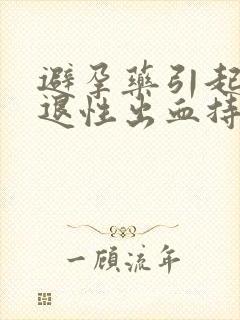 避孕药引起
退性出血持
一顾流年